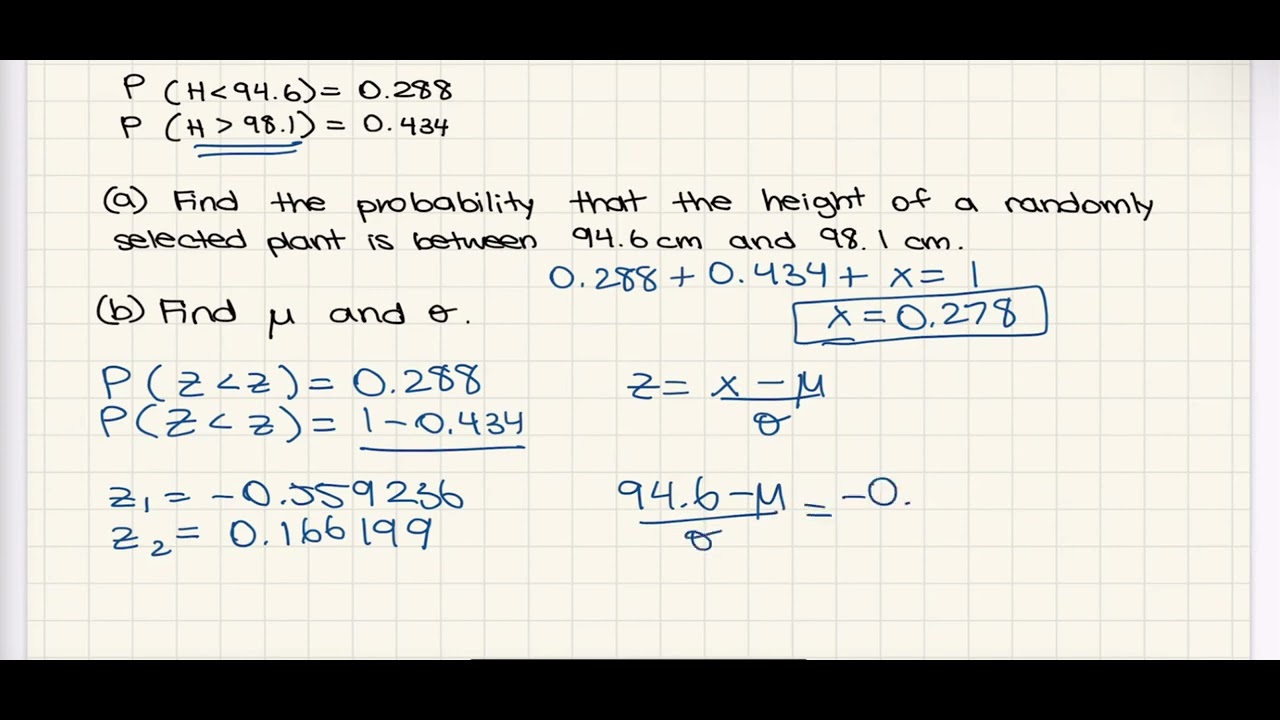 P (H < 94.6) = 0.288
P (H > 98.1) = 0.434
(a) Find the probability that the height of a randomly
selected plant is between 94.6 cm and 98.1 cm.
0.288 + 0.434 + x = 1
x = 0.278
(b) Find μ and σ.
P(Z < z) = 0.288
P(Z < z) = 1 - 0.434
z₁ = -0.559236
z₂ = 0.166199
z = x - μ / σ
94.6 - μ / σ = -0.